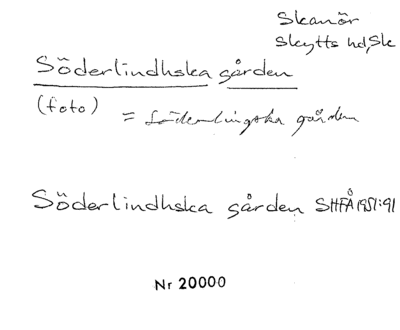 Skanör
Skytts hd, Sk
Söderlindhska gården
(foto) = Söderlingska gården
Söderlindhska gården SHFÅ 1951:91
Nr 20000